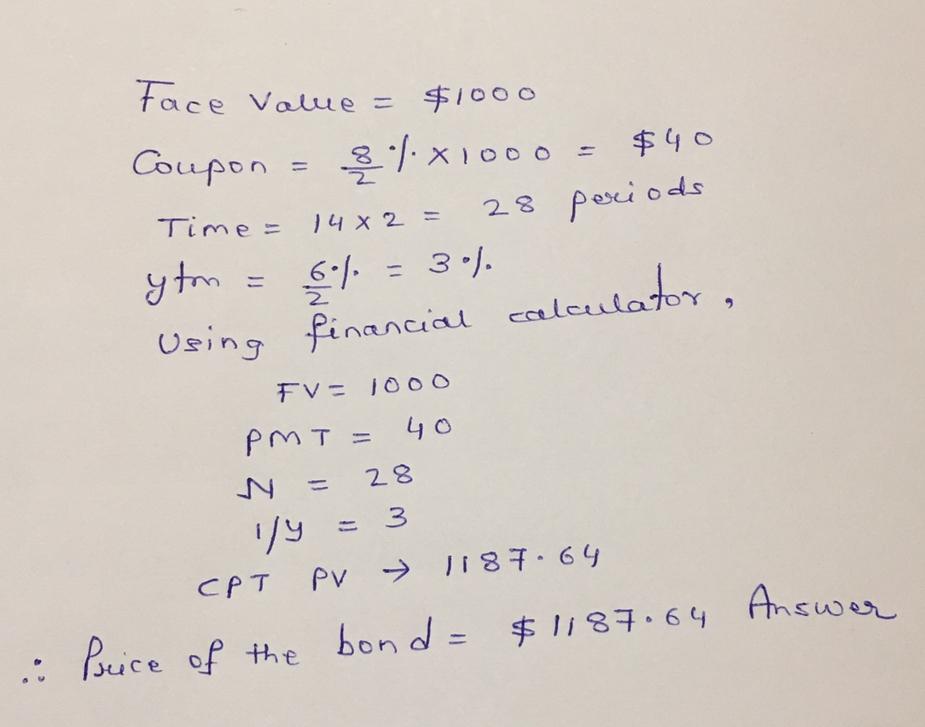 Face Value = $1000
Coupon = 8/2 % x 1000 = $40
Time = 14 x 2 = 28 periods
ytm = 6/2 % = 3%.
Using financial calculator,
FV = 1000
PMT = 40
N = 28
I/y = 3
CPT PV → 1187.64
∴ Price of the bond = $1187.64 Answer